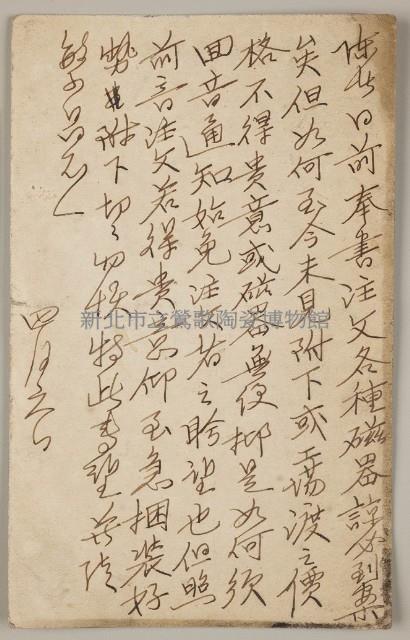 日前奉書注文各種磁器諒必到案
矣但如何至今未見附下或工場渡之價
格不得貴意或磁器無便抑是如何須
回音通知始免注文者之盼望也但照
前音注文若得貴意仰至急捆裝好
附下切切勿悞特此專望並請
四月六日
新北市立鶯歌陶瓷博物館